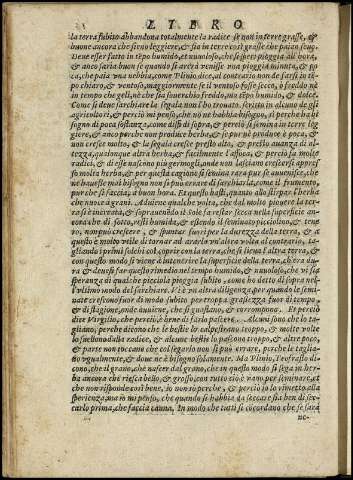 LIBRO
la terra subito abbandona totalmente la radice se non in terre grasse, et
buone ancora che siano leggiere, et sia in terre così grasse che paian sca
Deue esser fatto in tēpo humido, et nuuoloso, che si speri pioggia all'hora,
et anco sarà buon se quando si ara và venisse vna pioggia minuta, et po
ca, che paia vna nebbia, come Plinio dice, al contrario non de farsi in tē
po chiaro, et ventoso, maggiormente se il vento fosse secco, ò freddo nè
in tempo che geli, nè che sia souerchio freddo, ma tēpo humido, et dolce.
Come si deue sarchiare la segala non l'ho trouato, scritto in alcuno de gli
agricoltori, et perciò mi penso, che nō ne habbia bisogno, sì perche ha bi
sogno di poca sostanza, come dissi di sopra, et perciò si semina in terre leg
giere, et anco perche non produce herba, et se pur ne produce è poca, et
non cresce molto, et la segala cresce presto alto, et presto auanza di al-
tezza, qualunque altra herba, et facilmente l'affoca, et perciò fa molte
radici, et di esse nascono più germogli, onde non lasciam crescersi appres
so molta herba, et per questa cagione si semina rara pur se auuenisse, che
ne hauesse mai bisogno non si può errare di sarchiarla, come il frumento,
pur che si faccia, a buon hora. Et questo basti, quanto allo stirpar l'herba
che nuoce à grani. Aduiene qualche volta, che dal molto piouere la ter-
ra s'indurata, et soprauenēdo il Sole fa restar secca nella superficie an-
cora che di sotto, resti humida, et essendo il seminato picciolino, et tene-
ro, non può crescere, et spuntar fuori per la durezza della terra, et a
questo è molto vtile di tornar ad ararla vn'altra volta al contrario, ta-
gliando i primi solchi col coprir con la terra, che si lieua l'altra terra, et
con questo modo si viene à intenerire la superficie della terra, ch'era du
ra et deuesi far questo rimedio nel tempo humido, et nuuoloso, che vi sia
speranza di qualche picciola pioggia subito come ho detto di sopra nel
l'vltimo modo del sarchiare. V'è vn'altra diligenza, per quando le semi-
nate crescono fuor di modo subito per troppa grassezza fuor di tempo
et di stagione, onde auuiene, che si guastano, et corrompono. Et perciò
dice Virgilio, che perciò, è bene di farlo pascere. Alcuni sono che lo ta-
gliano, perche dicono che le bestie lo calpestrano troppo, et molte volte
lo suellono dalla radice, et alcune bestie lo pascono troppo, et altre poco,
et parte non toccano che col segarlo non si può errare, perche le taglia-
no vgualmente, et doue nè è bisogno solamente. Ma Plinio, Teofrasto di-
cono, che il grano, che nasce dal grano, che in questo modo si sega in her-
ba ancora che riesca bello, et grosso, con tutto ciò è vano per seminare, et
che nō risponde così bene, io non lo prouai, et perciò io lo rimetto alla
sperienza, ma io mi penso, che quando si habbia da seccare sia ben di sec-
carlo prima, che faccia canna, In modo che tutti si cōcordano che se sarà
ne-